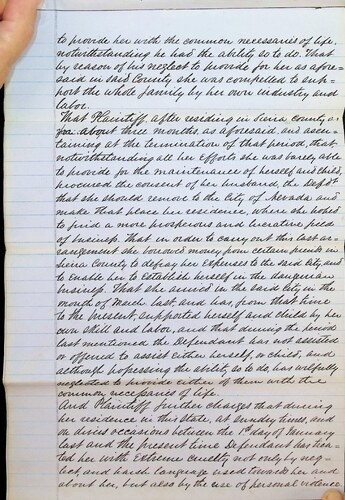 to provide her with the common necessaries of life,
notwithstanding he had the ability so to do. That
by reason of his neglect to provide for her as afore-
said in said County she was compelled to sup-
port the whole family by her own industry and
labor.
That Plaintiff, after residing in Sierra County as
about three months, as aforesaid, and ascer-
taining at the termination of that period, that,
notwithstanding all her efforts she was barely able
to provide for the maintenance of herself and child,
procured the consent of her husband, the Def't
that she should remove to the City of Nevada and
make that place her residence, where she hoped
to find a more prosperous and lucrative field
of business. That in order to carry out this last ar-
rangement she borrowed money from certain friends in
Sierra County to defray her expenses to the said City and
to enable her to establish herself in the daguerrian
business. That she arrived in the said City in the
month of March last and has, from that time
to the present, supported herself and child by her
own skill and labor, and that during the period
last mentioned the Defendant has not assisted
or offered to assist either herself, or child, and
although possessing the ability so to do, has wilfully
neglected to provide either of them with the
common necessaries of life.
And Plaintiff further charges that during
her residence in this State, at sundry times, and
on divers occasions between the 1st day of January
last and the present time Defendant has trea-
ted her with extreme cruelty not only by neg-
lect, and harsh language used towards her and
about her, but also by the use of personal violence